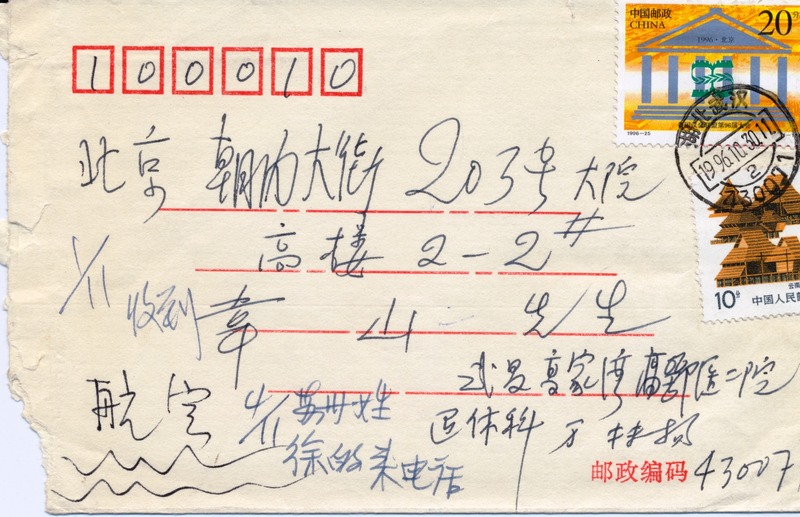 中国邮政
CHINA
20分
1996·北京
1996-25
湖北武汉
1996.10.30.17
2
430071
云南
10分
中国人民邮
100010
北京 朝内大街 203号大院
高楼 2-2#
1/11
收到
章 山 先生
武昌高家湾
二院
航空
4/11
苏州
退休科
来电话
邮政编码 43007